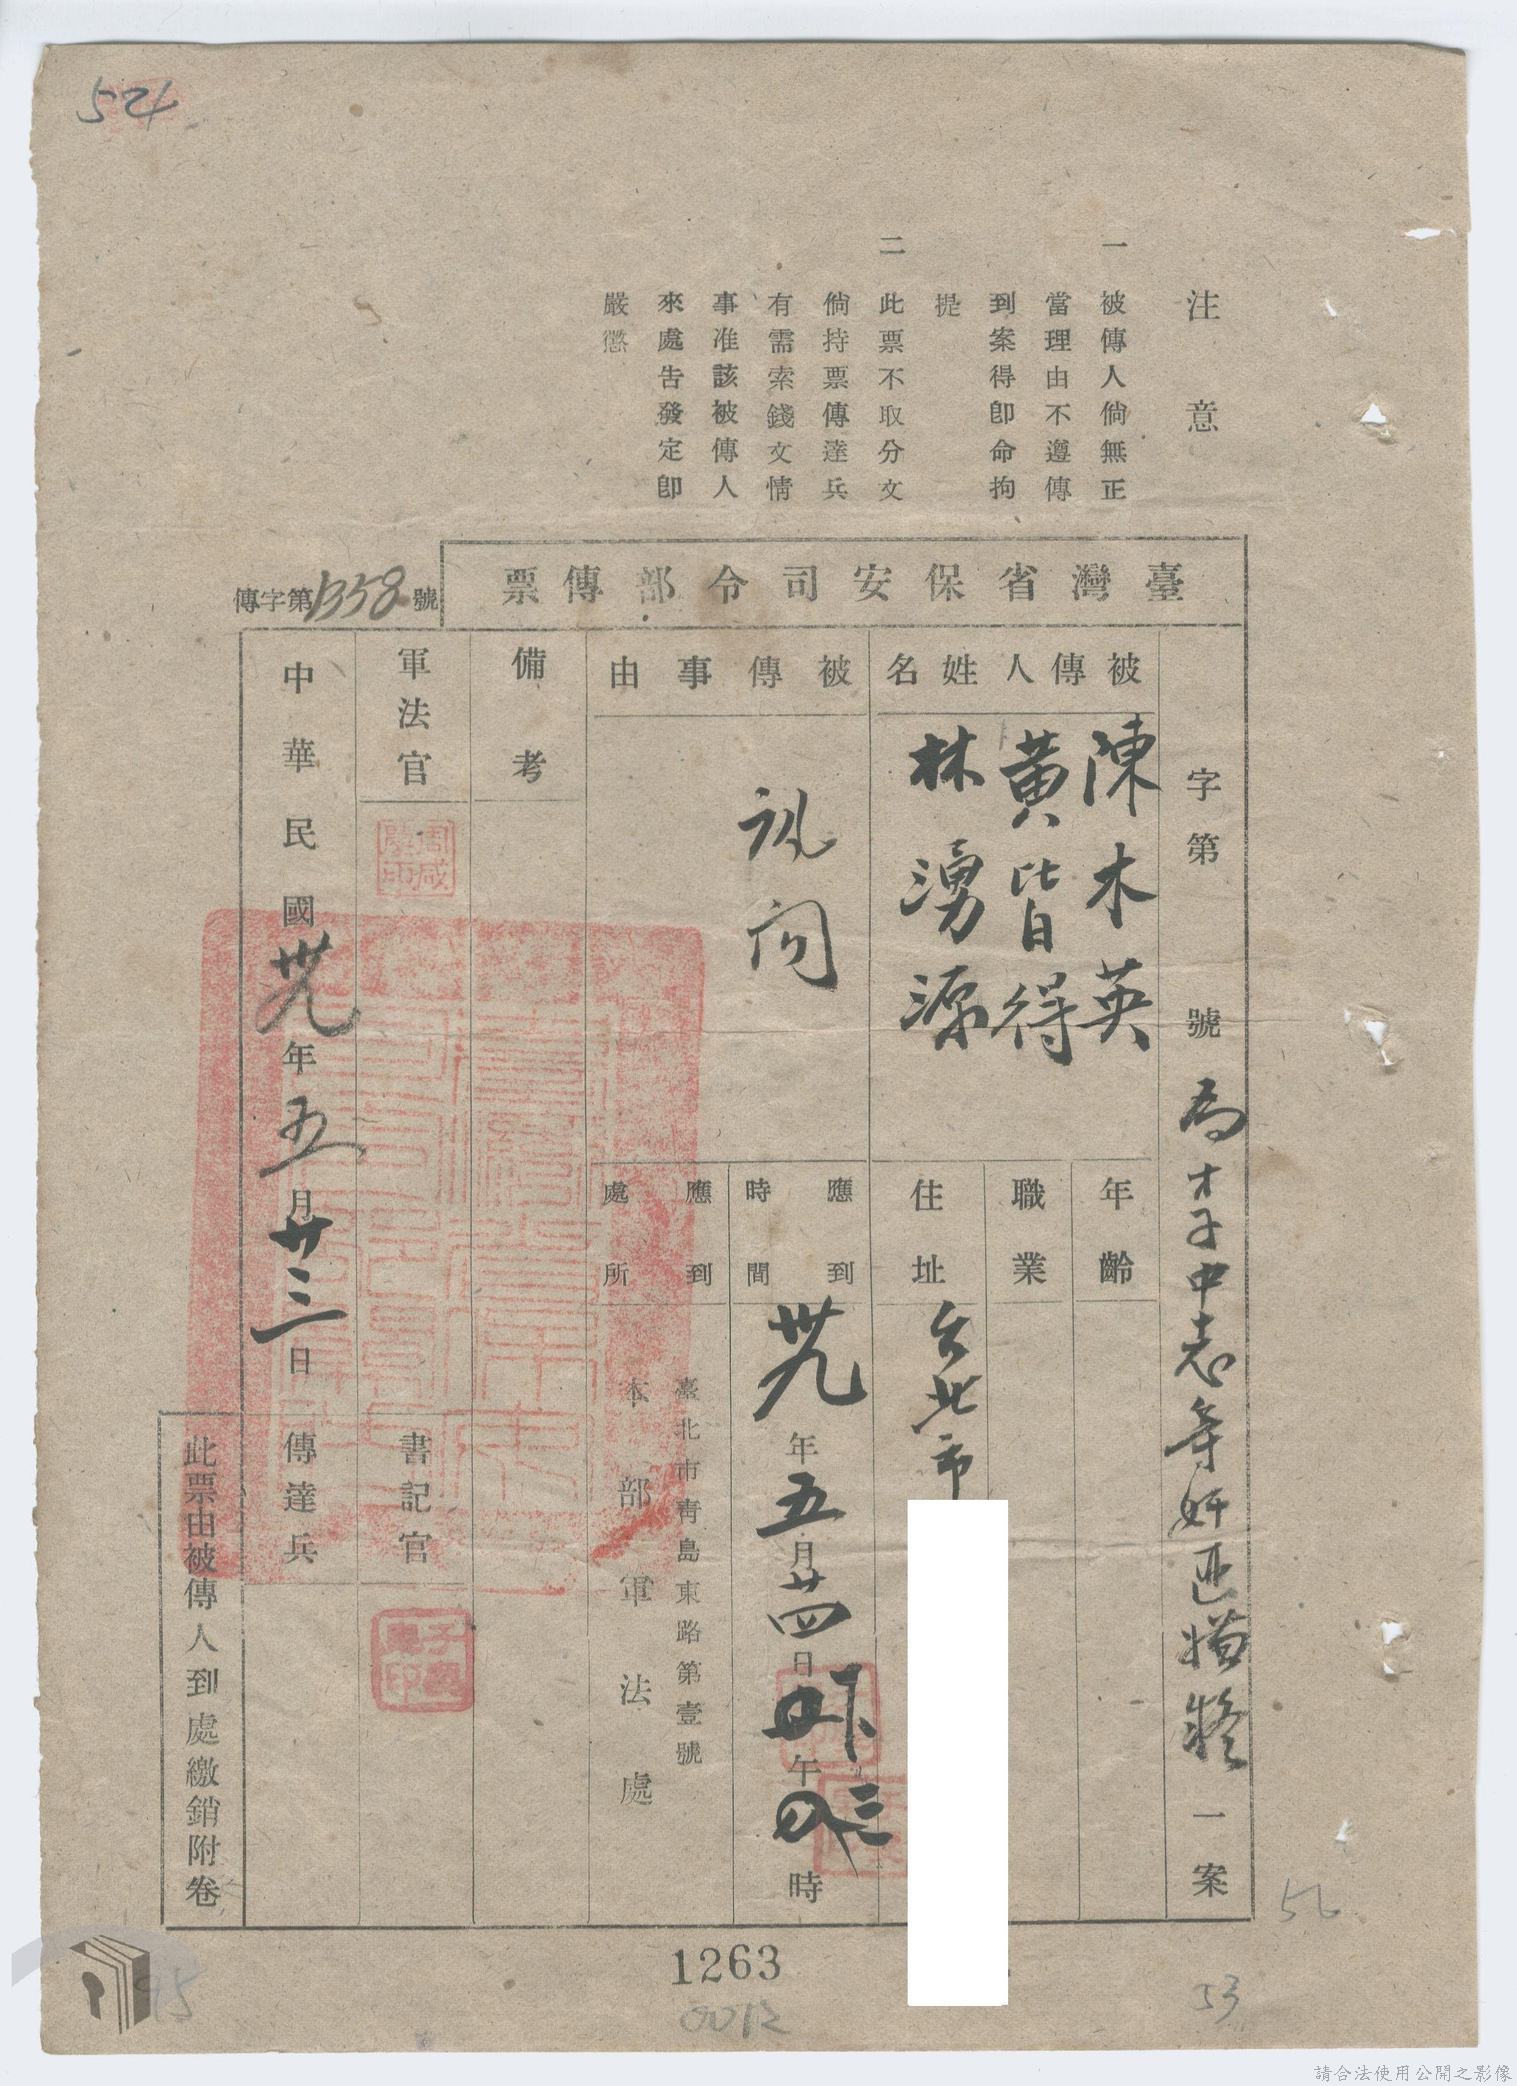 521
注意
一 被傳人倘無正
當理由不遵傳
到案得卽命拘
提
二 此票不取分文
倘持票傳達兵
有需索錢文情
事准該被傳人
來處告發定卽
嚴懲
臺灣省保安司令部傳票
傳字第1358號
字第 號 為于中志等奸匪嫌疑一案
被傳人姓名
陳木英
黃皆得
林湧源
年齡
職業
住址
台北市
被傳事由
訊問
應到時間
卅九年五月廿四日下午三時
應到處所
臺北市靑島東路第壹號
本部軍法處
備考
軍法官
書記官
中華民國卅九年五月廿三日
傳達兵
此票由被傳人到處繳銷附卷
1263
0012
56
53
95
請合法使用公開之影像